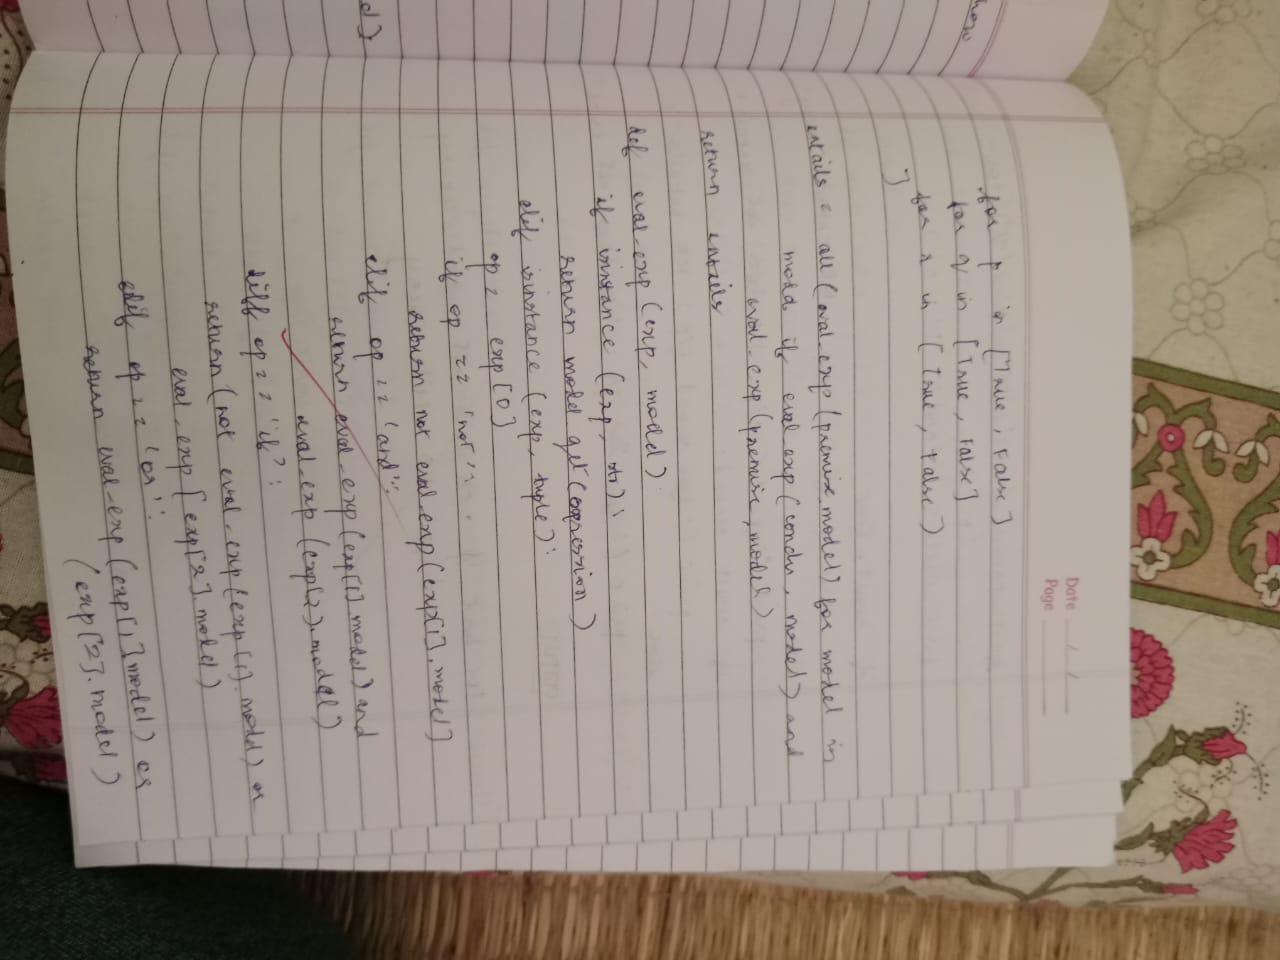 Date
Page
for p in [True, False]
for q in [True, False]
for r in [True, False)
]
entails = all (eval-exp (premise, model) for model in
models if eval exp (condn, model) and
eval-exp (premise, model)
return entails
def eval-exp (exp, model):
if instance (exp, str):
return model get (expression)
elif isinstance (exp, tuple):
op = exp[0]
if op == 'not':
return not eval-exp (exp[1], model]
elif op == 'and':
return eval-exp (exp[1], model) and
eval-exp (exp[2], model)
eliff op == 'if':
return (not eval-exp (exp[1], model) or
eval-exp [exp[2], model)
elif op == 'or':
return eval-exp (exp[1], model) or
(exp[2], model)